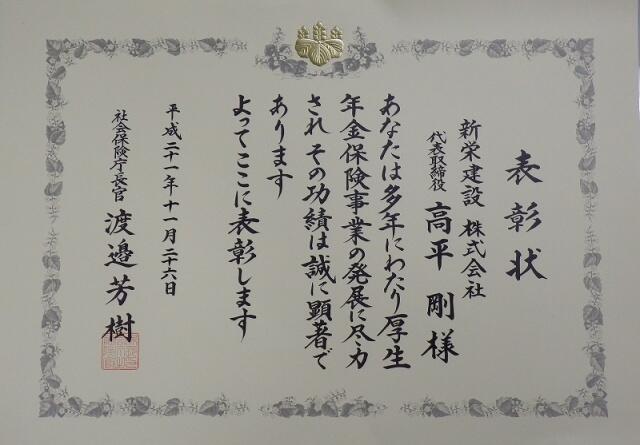 表彰状
新栄建設 株式会社
代表取締役 高平 剛 様
あなたは多年にわたり厚生
年金保険事業の発展に尽力
され その功績は誠に顕著で
あります
よってここに表彰します
平成二十一年十一月二十六日
社会保険庁長官 渡邉芳樹